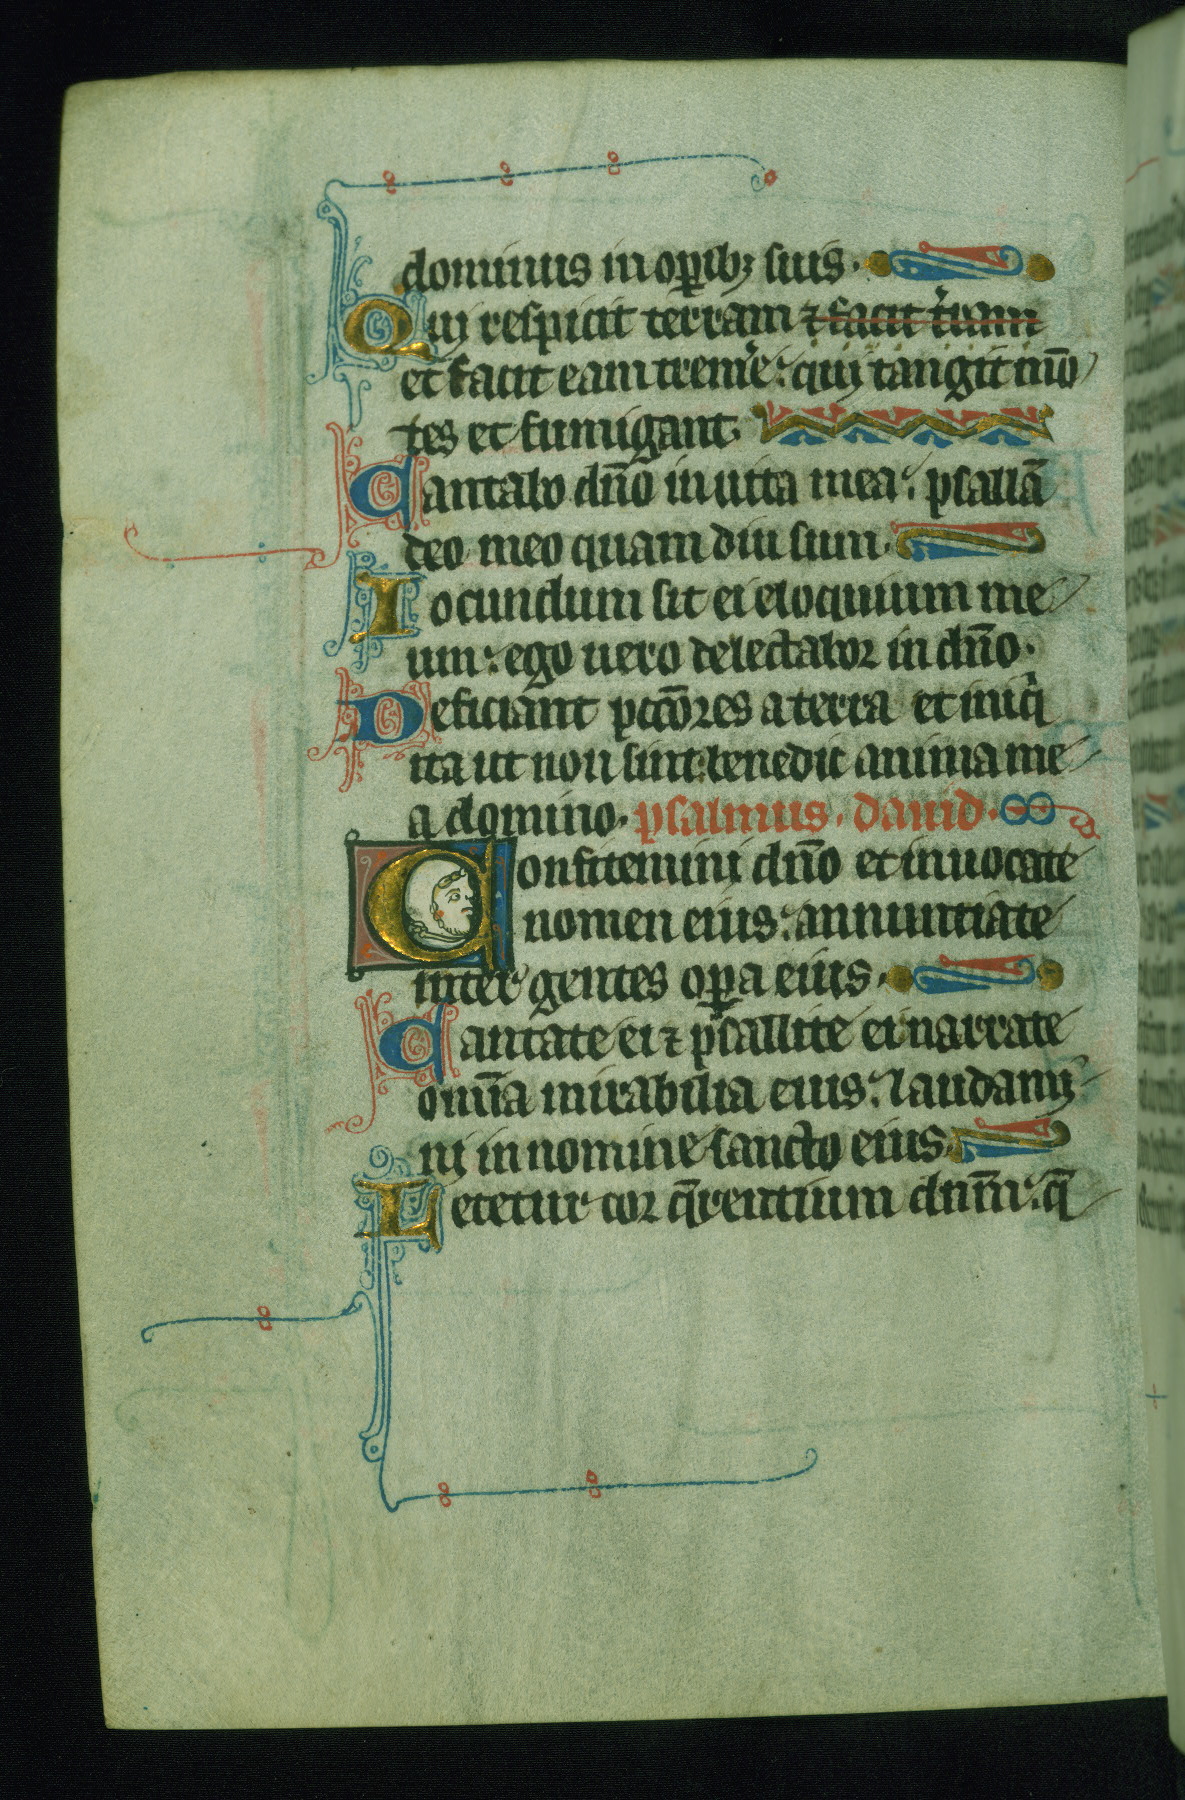 dominus in opib; suis.
Qui respicit terram ⁊ facit t'ram
et facit eam trem'e: qui tangit mō
tes et fumigant.
Cantabo dño in uita mea: psallā
deo meo quam diu sum.
Iocundum sit ei eloquium me
um: ego uero delectabor in dño.
Deficiant pccōres a terra et iniq
ita ut non sint: benedic anima me
a domino. psalmus. dauid.
Confitemini dño et inuocate
nomen eius: annuntiate
inter gentes opa eius.
Cantate ei ⁊ psallite ei narrate
omīa mirabilia eius: laudami
ni in nomine sancto eius
Letetur cor q̄rentium dnm̄: q̄